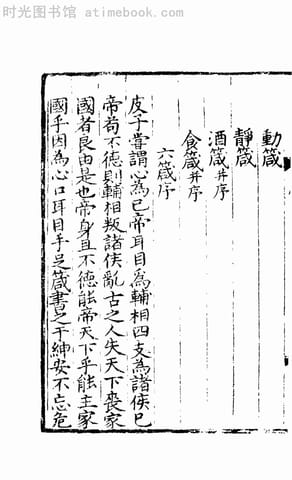 时光图书馆 atimebook.com
動箴
靜箴
酒箴并序
食箴并序
六箴序
皮子嘗謂心為己帝耳目為輔相四支為諸侯己
帝苟不德則輔相叛諸侯亂古之人失天下喪家
國者良由是也帝身且不德能帝天下乎能主家
國乎因為心口耳目手足箴書之于紳安不忘危